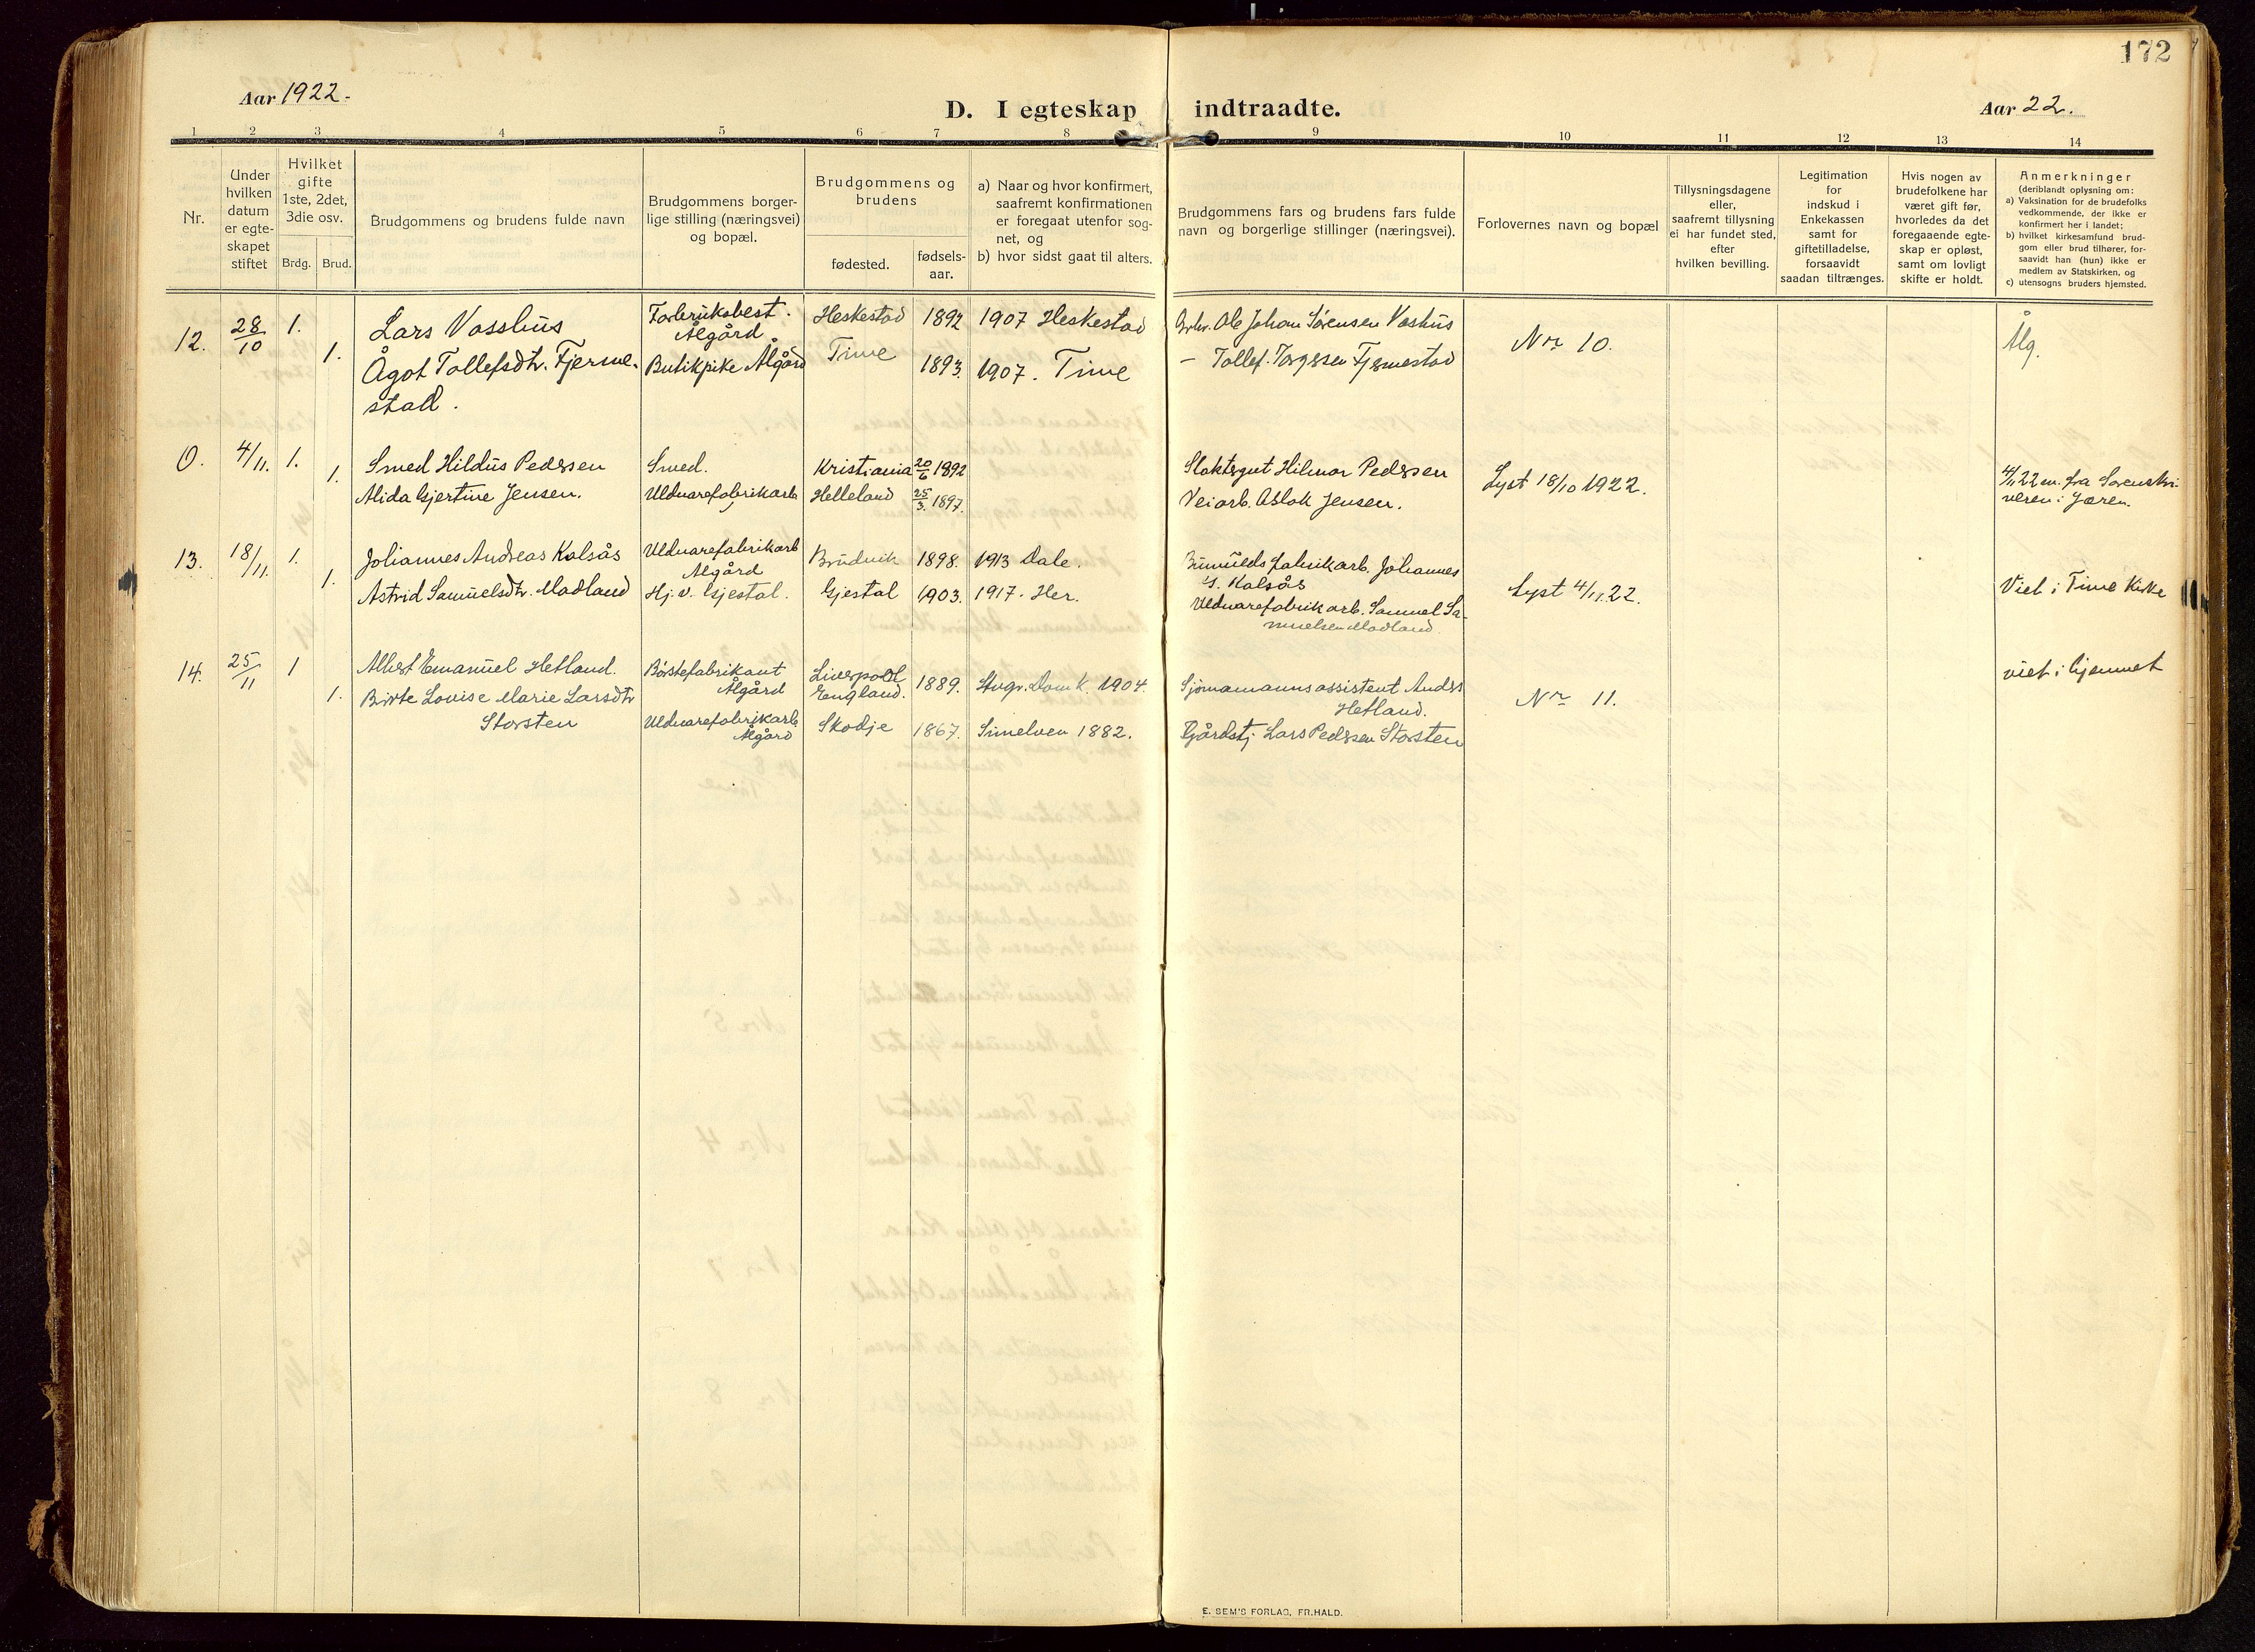 172
Aar 1922.
D. I egteskap indtraadte.
Aar 22.
1 2 3 4 5 6 7 8 9 10 11 12 13 14
Nr.
Under
hvilken
datum
er egte-
skapet
stiftet
Hvilket
gifte
1ste, 2det,
3die osv.
Brdg. Brud.
Brudgommens og brudens fulde navn
Brudgommens borger-
lige stilling (næringsvei)
og bopæl.
Brudgommens og
brudens
fødested.
fødsels-
aar.
a) Naar og hvor konfirmert,
saafremt konfirmationen
er foregaat utenfor sog-
net, og
b) hvor sidst gaat til alters.
Brudgommens fars og brudens fars fulde
navn og borgerlige stillinger (næringsvei).
Forlovernes navn og bopæl
Tillysningsdagene
eller,
saafremt tillysning
ei har fundet sted,
efter
hvilken bevilling.
Legitimation
for
indskud i
Enkekassen
samt for
giftetilladelse,
forsaavidt
saadan tiltrænges.
Hvis nogen av
brudefolkene har
været gift før,
hvorledes da det
foregaaende egte-
skap er opløst,
samt om lovligt
skifte er holdt.
Anmerkninger
(deriblandt oplysning om:
a) Vaksination for de brudefolks
vedkommende, der ikke er
konfirmert her i landet;
b) hvilket kirkesamfund brud-
gom eller brud tilhører, for-
saavidt han (hun) ikke er
medlem av Statskirken, og
c) utensogns bruders hjemsted.
12. 28/10 1. Lars Vasshus Fabriksbest. Ålgård Heskestad 1892 1907 Heskestad Grbr. Ole Johan Sørensen Vashus Nr 10. Ålg.
1. Ågot Tollefsdtr. Fjerme-
stad. Butikpike Ålgård Time 1893. 1907. Time — Tollef Torgersen Fjermestad
0. 4/11. 1. Smed Hildus Pedersen Smed. Kristiania 20/6 1892 Slaktergut Hilmar Pedersen Lyst 18/10 1922. 4/11 22 m. fra Sorenskri-
veren i Jæren.
1. Alida Gjertine Jensen. Uldvarefabrikarb Helleland 25/3 1897. Veiarb. Aslak Jensen.
13. 18/11. 1. Johannes Andreas Kalsås Uldvarefabrikarb Ålgård Brudvik 1898. 1913 Dale. fabrikarb. Johannes
Kalsås Lyst 4/11 22. Viet i Time Kirke
1. Astrid Samuelsdtr. Madland Hj. v. Gjestal. Gjestal 1903. 1917. Her. Uldvarefabrikarb. Samuel Sa-
muelsen Madland
14. 25/11 1 Albert Emanuel Hetland. Børstefabrikant
Ålgård Liverpool
England. 1889. Stvgr. Domk. 1904. Sjømannsassistent Anders
Hetland. Nr 11. viet i hjemmet
1. Birte Louise Marie Larsdtr
Storsten Uldvarefabrikarb
Ålgård Skodje 1867. 1882. Gårdstj. Lars Pedersen Storsten
E. SEM'S FORLAG, FR.HALD.